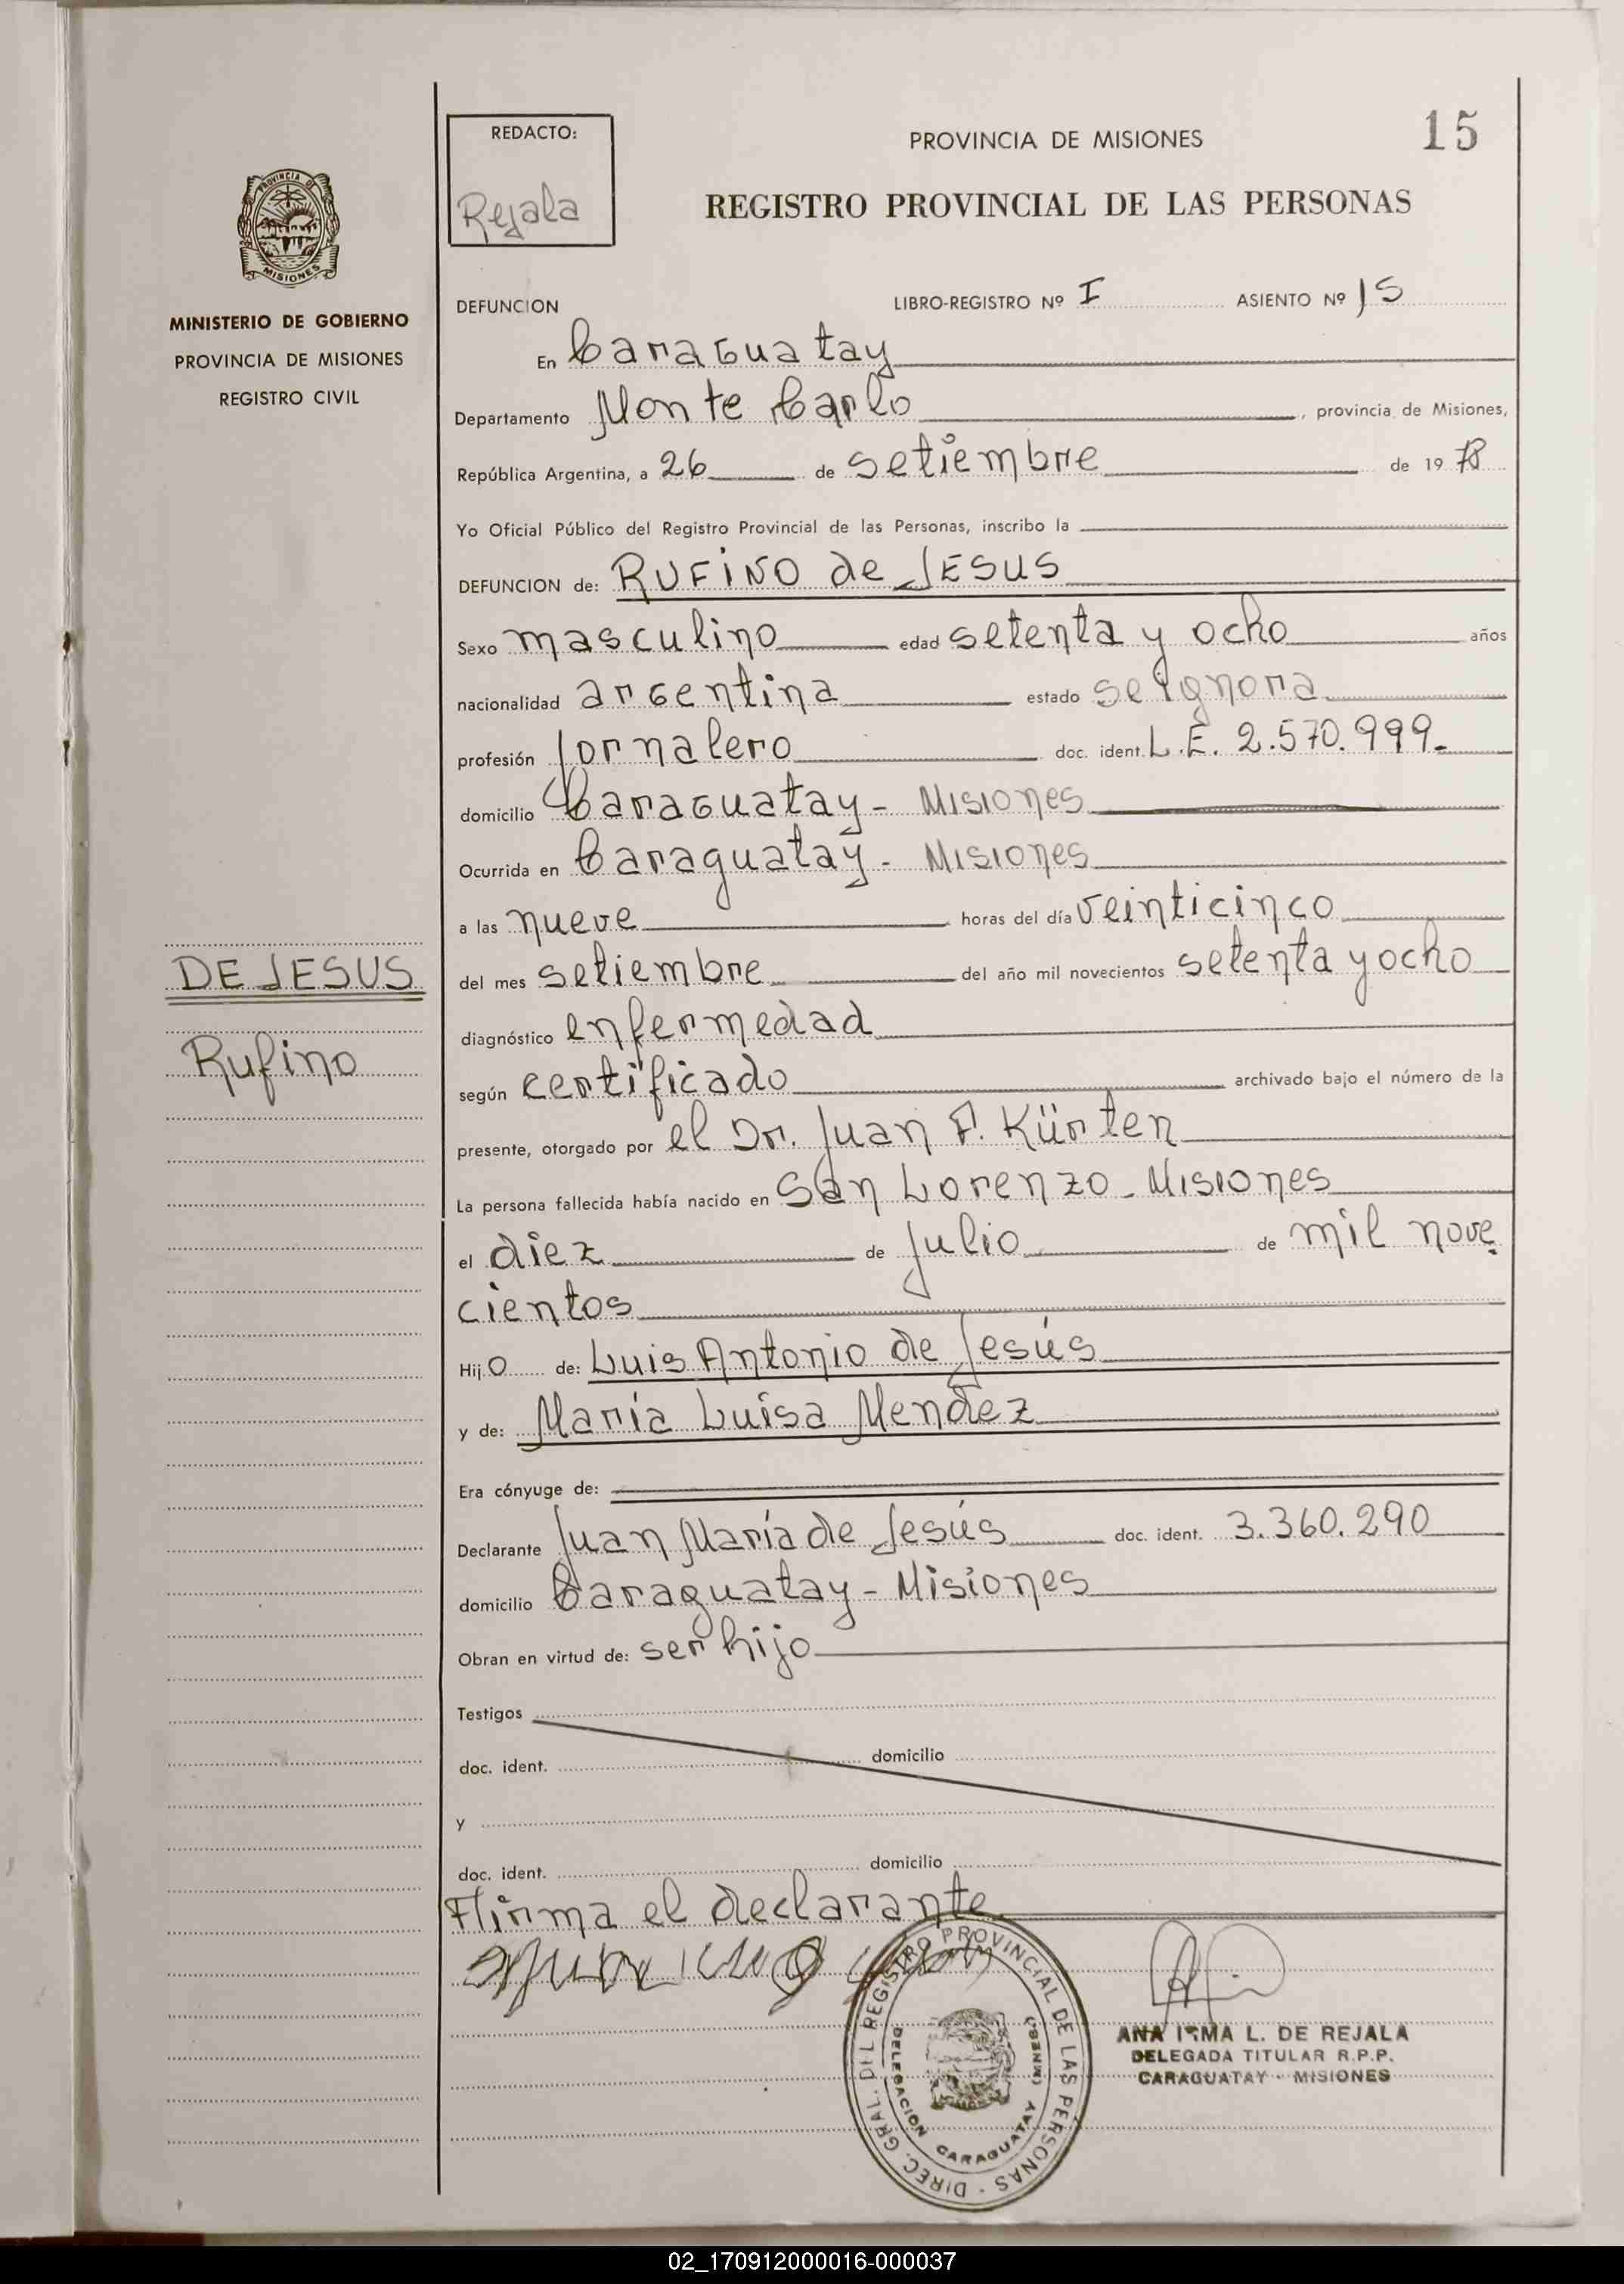 15
REDACTO:
Rejala
PROVINCIA DE MISIONES
REGISTRO PROVINCIAL DE LAS PERSONAS
PROVINCIA DE
MISIONES
MINISTERIO DE GOBIERNO
PROVINCIA DE MISIONES
REGISTRO CIVIL
DEFUNCION LIBRO-REGISTRO Nº I ASIENTO Nº 15
En Caraguatay
Departamento Monte Carlo, provincia de Misiones,
República Argentina, a 26 de setiembre de 19 78
Yo Oficial Público del Registro Provincial de las Personas, inscribo la
DEFUNCION de: RUFINO de JESUS
Sexo masculino edad setenta y ocho años
nacionalidad argentina estado se ignora
profesión Jornalero doc. ident. L.E. 2.570.999.
domicilio Caraguatay - Misiones
Ocurrida en Caraguatay - Misiones
a las nueve horas del día veinticinco
del mes setiembre del año mil novecientos setenta y ocho
diagnóstico enfermedad
según certificado archivado bajo el número de la
presente, otorgado por el Dr. Juan F. Kürten
La persona fallecida había nacido en San Lorenzo - Misiones
el diez de julio de mil nove
cientos
Hijo de: Luis Antonio de Jesús
y de: María Luisa Mendez
Era cónyuge de:
Declarante Juan María de Jesús doc. ident. 3.360.290
domicilio Caraguatay - Misiones
Obran en virtud de: ser hijo
Testigos
doc. ident. domicilio
y
doc. ident. domicilio
Firma el declarante
DE JESUS
Rufino
DIREC. GRAL. DEL REGISTRO PROVINCIAL DE LAS PERSONAS
DELEGACION CARAGUATAY (MNES.)
ANA IRMA L. DE REJALA
DELEGADA TITULAR R.P.P.
CARAGUATAY - MISIONES
02_170912000016-000037